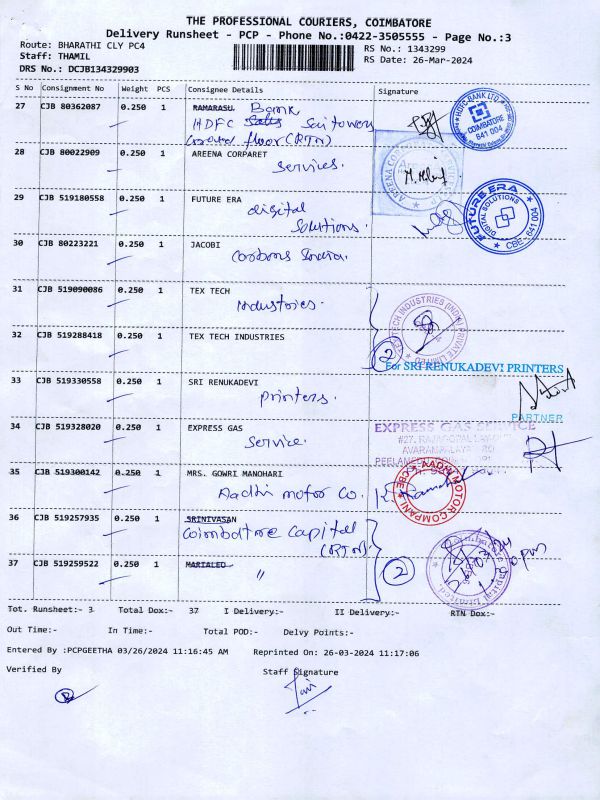 THE PROFESSIONAL COURIERS, COIMBATORE
Delivery Runsheet - PCP - Phone No.:0422-3505555 - Page No.:3
Route: BHARATHI CLY PC4
RS No.: 1343299
Staff: THAMIL
RS Date: 26-Mar-2024
DRS No.: DCJB134329903
S No Consignment No Weight PCS Consignee Details Signature
27 CJB 80362087 0.250 1 RAMARASU Bank
HDFC Sai towers
floor (RTN)
HDFC BANK LTD.
COIMBATORE
641 004
28 CJB 80022909 0.250 1 AREENA CORPARET
Services.
29 CJB 519180558 0.250 1 FUTURE ERA
digital
Solutions.
FUTURE ERA
DIGITAL SOLUTIONS
CBE - 641 004
30 CJB 80223221 0.250 1 JACOBI
Carbons India.
31 CJB 519090086 0.250 1 TEX TECH
Industries.
TEX TECH INDUSTRIES (INDIA) PRIVATE LIMITED
32 CJB 519288418 0.250 1 TEX TECH INDUSTRIES
2
For SRI RENUKADEVI PRINTERS
33 CJB 519330558 0.250 1 SRI RENUKADEVI
printers.
PARTNER
34 CJB 519328020 0.250 1 EXPRESS GAS
Service.
EXPRESS GAS SERVICE
35 CJB 519300142 0.250 1 MRS. GOWRI MANOHARI
Aadhi motor Co.
AADHI MOTOR COMPANY
CBE
36 CJB 519257935 0.250 1 SRINIVASAN
Coimbatore Capital
(RTN)
37 CJB 519259522 0.250 1 MARIALEO
"
2
Tot. Runsheet:- 3 Total Dox:- 37 I Delivery:- II Delivery:- RTN Dox:-
Out Time:- In Time:- Total POD:- Delvy Points:-
Entered By :PCPGEETHA 03/26/2024 11:16:45 AM Reprinted On: 26-03-2024 11:17:06
Verified By Staff Signature